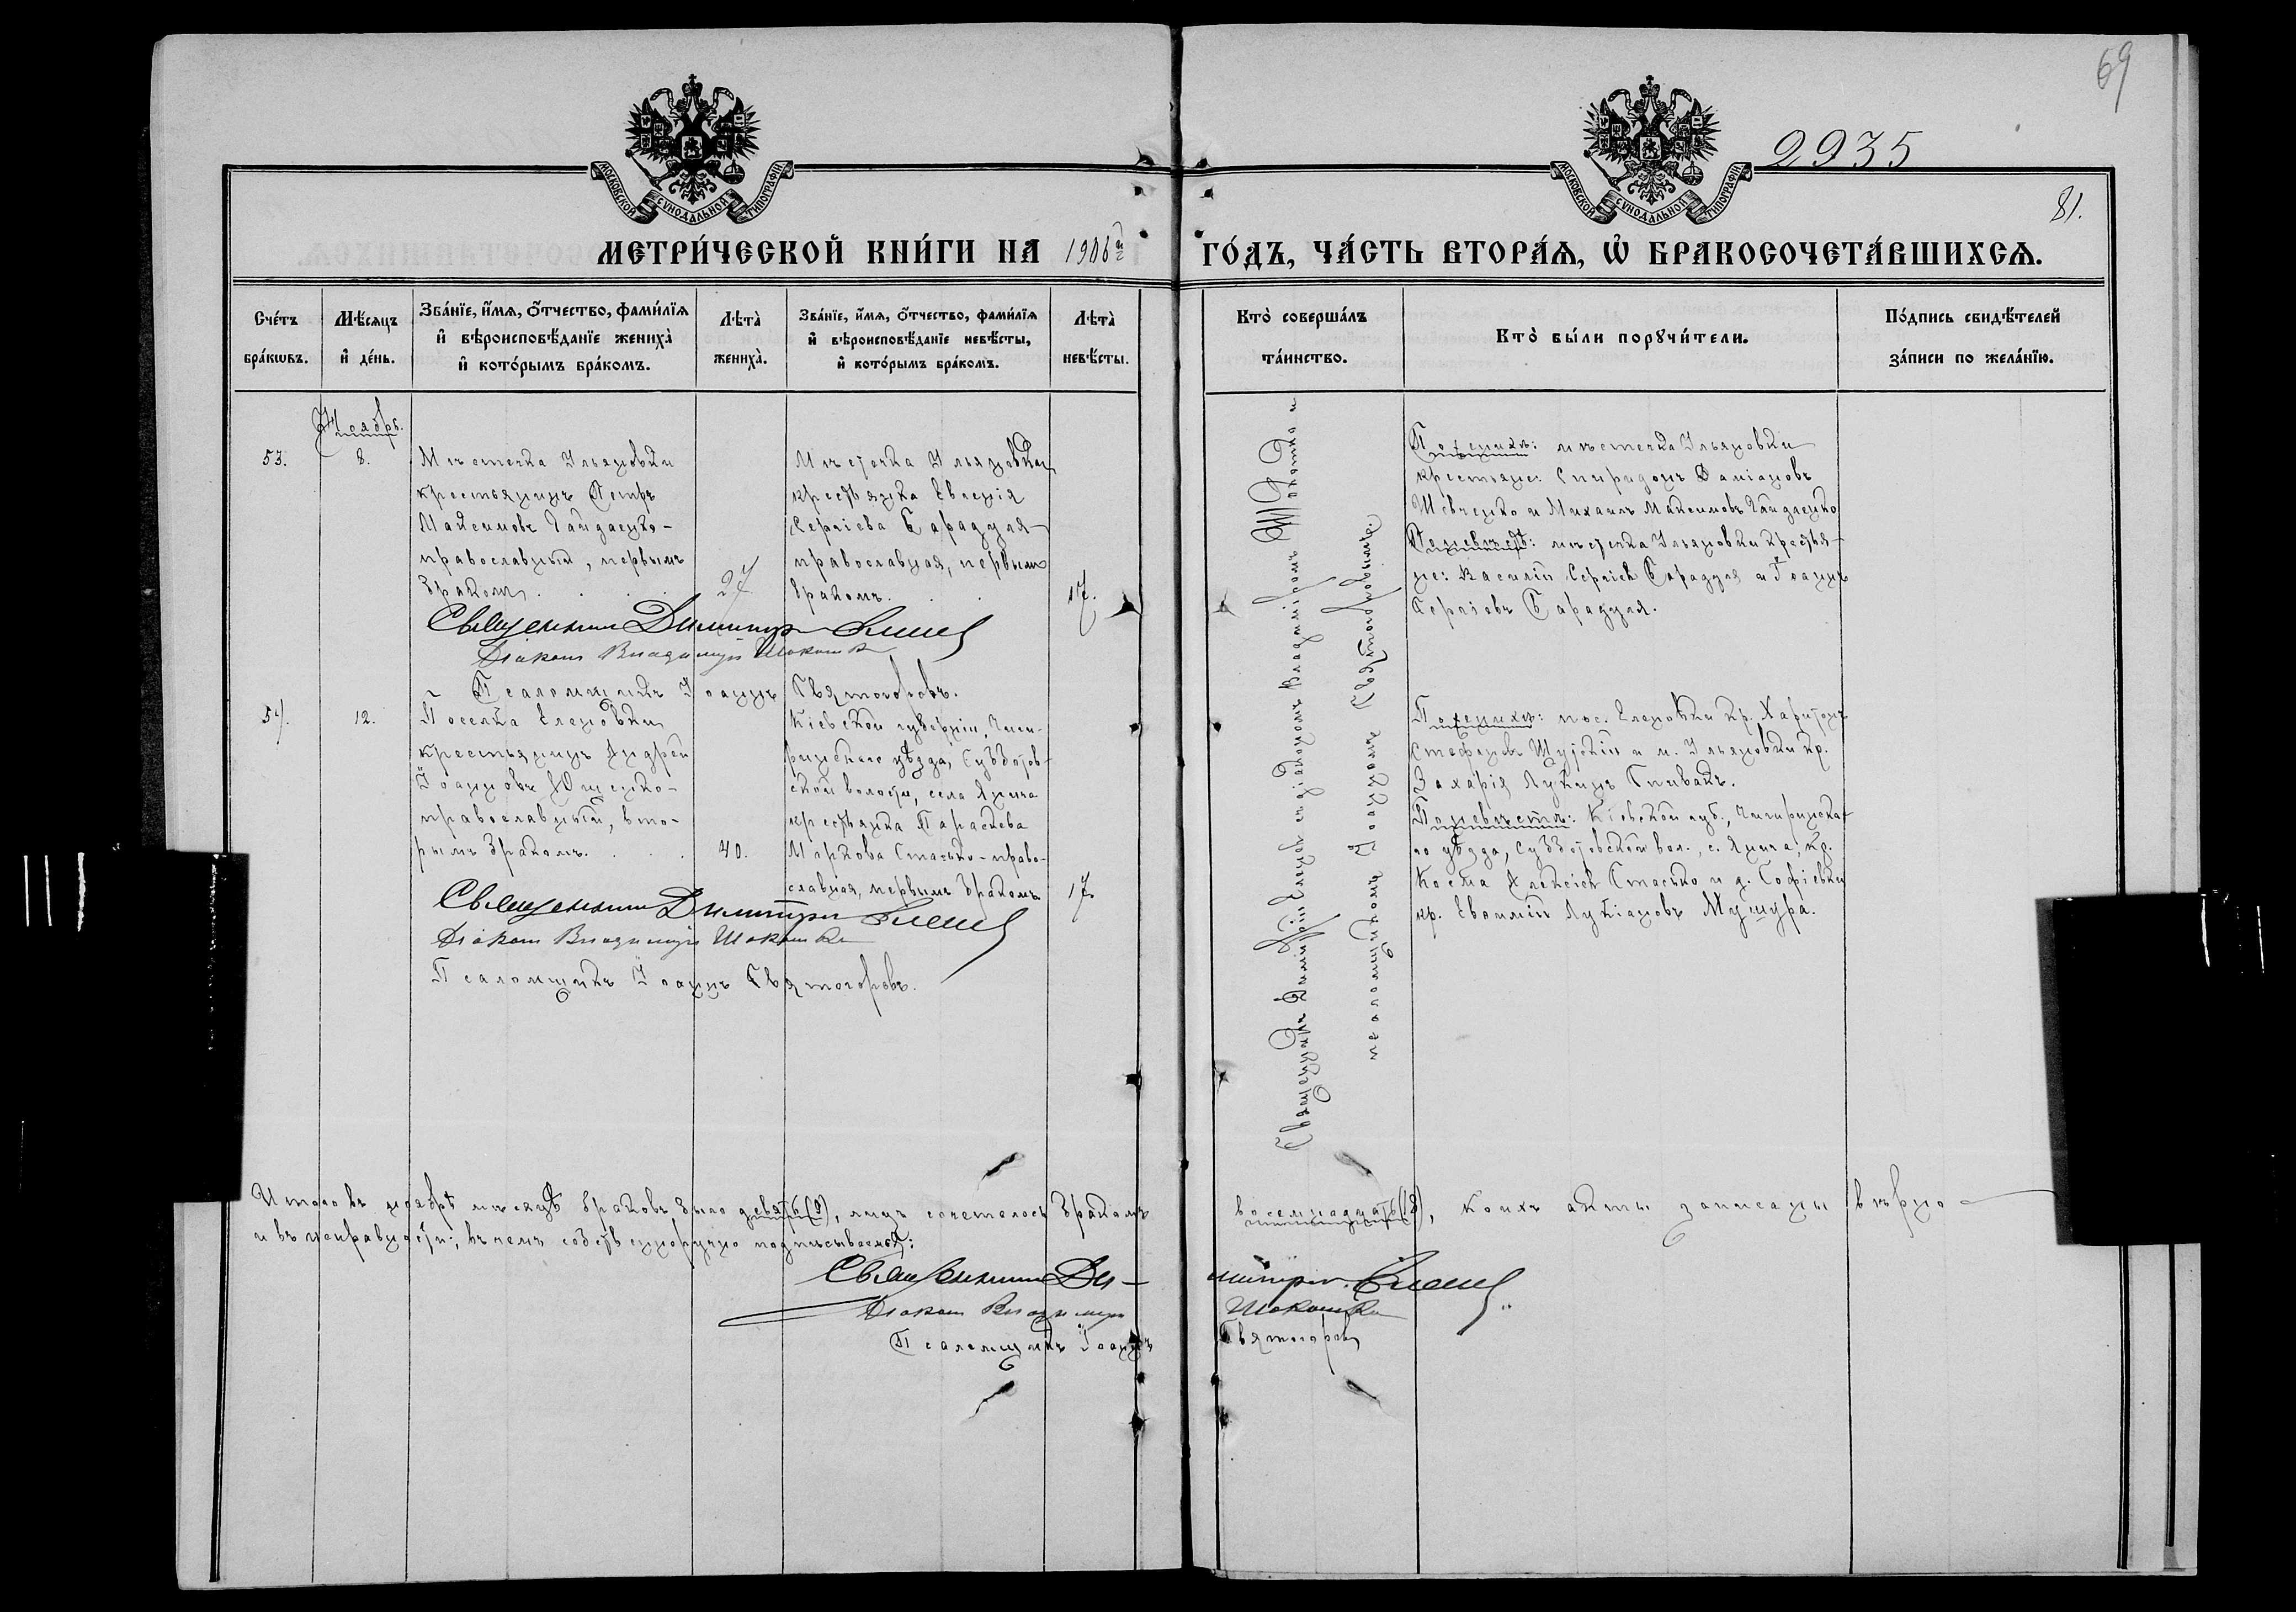 69
2935
81.
МОСКОВСКОЙ СѴНОДАЛЬНОЙ ТИПОГРАФІИ
МОСКОВСКОЙ СѴНОДАЛЬНОЙ ТИПОГРАФІИ
МЕТРИ́ЧЕСКОЙ КНИ́ГИ НА 1906й ГО́ДЪ, ЧА́СТЬ ВТОРА́Я, Ѽ БРАКОСОЧЕТА́ВШИХСЯ.
Сче́тъ бра́кѡвъ.
Мѣ́сяцъ и҆ де́нь.
Зва́нїе, и҆́мя, ѻ҆́тчество, фами́лїя и҆ вѣроисповѣ́данїе жениха̀ и҆ кото́рымъ бра́комъ.
Лѣта̀ жениха̀.
Зва́нїе, и҆́мя, ѻ҆́тчество, фами́лїя и҆ вѣроисповѣ́данїе невѣ́сты, и҆ кото́рымъ бра́комъ.
Лѣта̀ невѣ́сты.
Кто̀ соверша́лъ та́инство.
Кто̀ бы́ли порꙋчи́тели.
По́дпись свидѣ́телей за́писи по жела́нїю.
Ноябрь.
53.
8.
Мѣстечка Ильяновки
крестьянинъ Петръ
Максимовъ Гайдаенко-
православный, первымъ
бракомъ . . . .
27.
Мѣстечка Ильяновки
крестьянка Евгенія
Сергіева Барадуля-
православная, первымъ
бракомъ. . .
17.
Священникъ Димитрій
Діаконъ Владиміръ
Псаломщикъ Іоаннъ Святогоровъ.
Поженихѣ: мѣстечка Ильяновки
крестьяне: Спиридонъ Даміановъ
Шевченко и Михаилъ Максимовъ Гайдаенко
Поневѣстѣ: мѣстечка Ильяновки крестья-
не: Василій Сергіевъ Барадуля и Іоаннъ
Сергіевъ Барадуля.
54.
12.
Поселка Еленовки
крестьянинъ Андрей
Іоанновъ Ющенко-
православный, вто-
рымъ бракомъ. . . .
40.
Кіевской губерніи, Чиги-
ринскаго уѣзда, Субботов-
ской волости, села Янича
крестьянка Параскева
Маркова Стасько-право-
славная, первымъ бракомъ
17.
Священникъ Димитрій
Діаконъ Владиміръ
Псаломщикъ Іоаннъ Святогоровъ.
Поженихѣ: пос. Еленовки кр. Харитонъ
Стефановъ Щускій и м. Ильяновки кр.
Захарія Лукинъ Спивакъ.
Поневѣстѣ: Кіевской губ., Чигиринска-
го уѣзда, Субботовской вол., с. Янича, кр.
Косма Алексіевъ Стасько и д. Софіевки
кр. Евѳимій Лукіановъ Мушура.
Священникъ Димитрій съ діакономъ Владиміромъ и
псаломщикомъ Іоанномъ Святогоровымъ.
Итого въ ноябрѣ мѣсяцѣ браковъ было девять (9), лицъ сочеталось бракомъ восемнадцать (18), коихъ акты записаны вѣрно
и въ исправности; въ чемъ собственноручно подписываемся:
Священникъ Димитрій
Діаконъ Владиміръ
Псаломщикъ Іоаннъ Святогоровъ